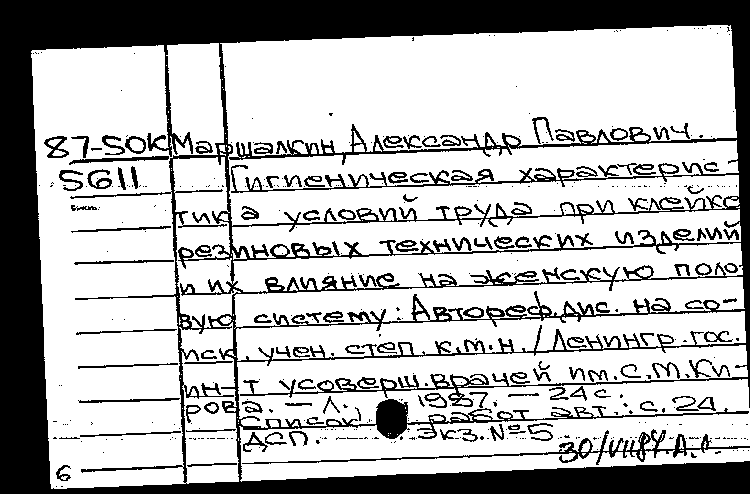 87-50К Маршалкин, Александр Павлович.
5611 Гигиеническая характерис-
тика условий труда при клейке
резиновых технических изделий
и их влияние на женскую поло-
вую систему: Автореф. дис. на со-
иск. учен. степ. к.м.н. / Ленингр. гос.
ин-т усоверш. врачей им. С.М. Ки-
рова. — Л., 1987. — 24 с.
Список работ авт.: с. 24.
ДСП. Экз. №5
30/VII87
6